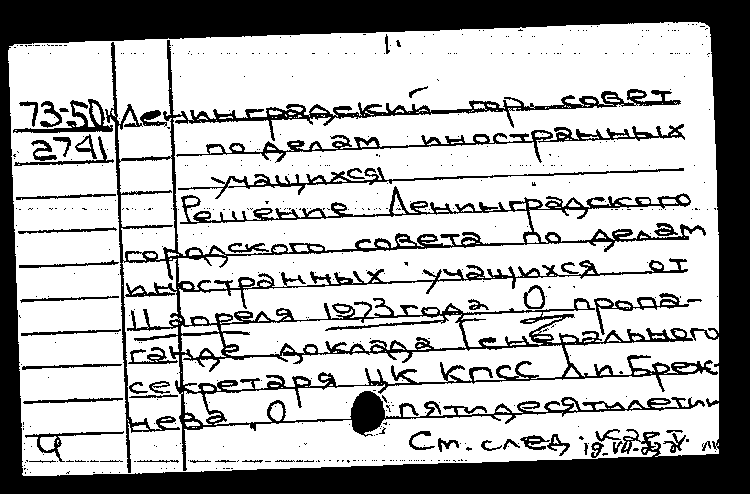 1.
73-50к Ленинградский гор. совет
2741 по делам иностранных
учащихся.
Решение Ленинградского
городского совета по делам
иностранных учащихся от
11 апреля 1973 года. О пропа-
ганде доклада Генерального
секретаря ЦК КПСС Л.И.Бреж-
нева. О пятидесятилетии
Ч См. след.